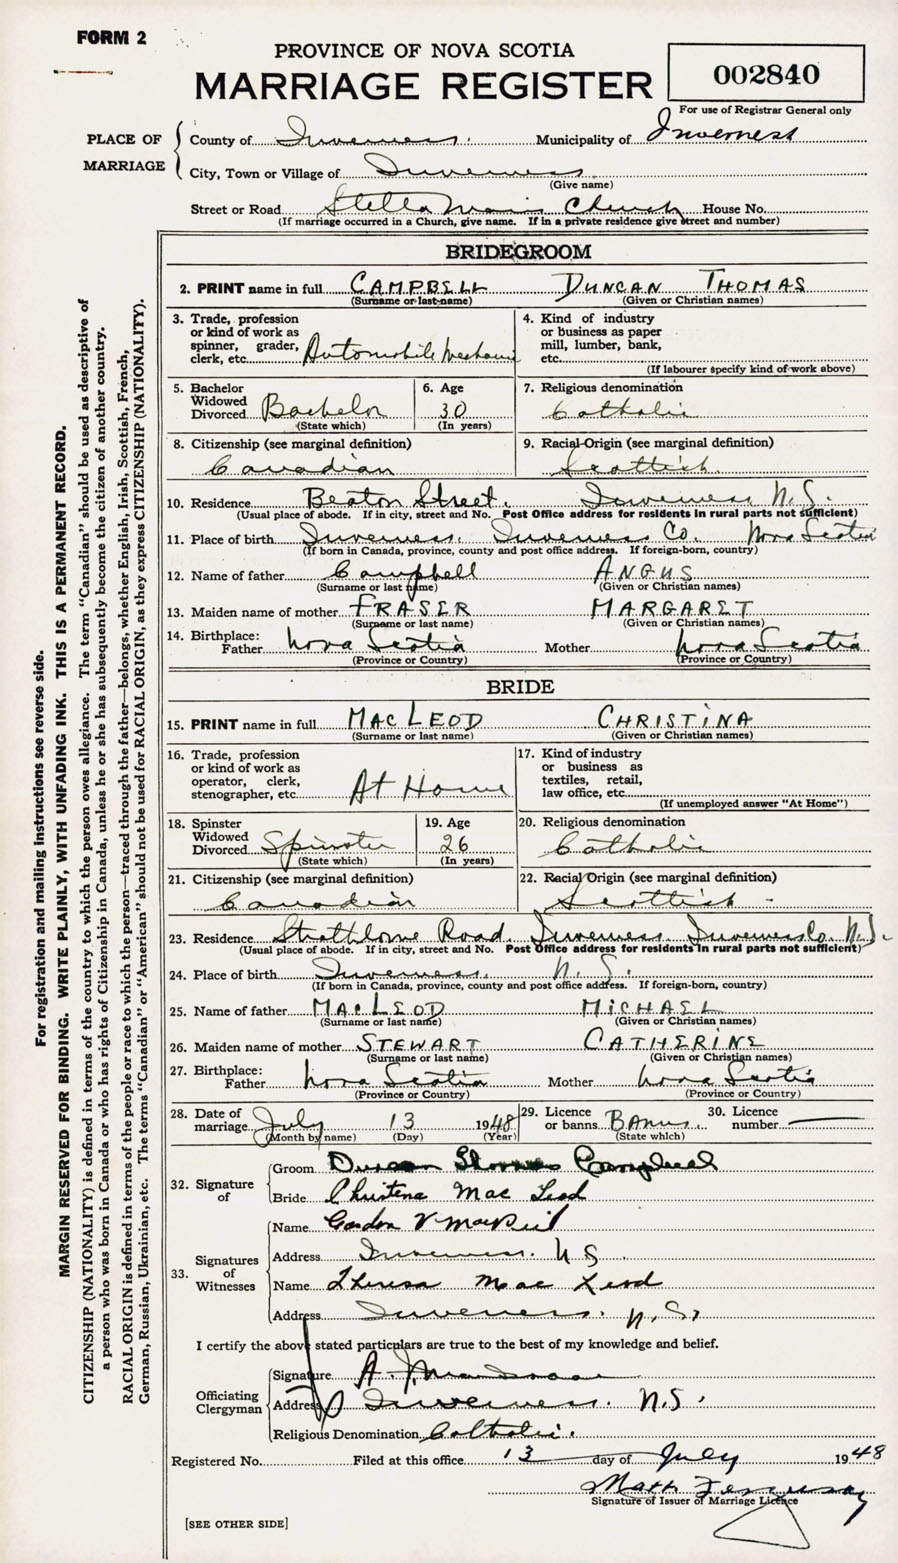 FORM 2
PROVINCE OF NOVA SCOTIA
MARRIAGE REGISTER
002840
For use of Registrar General only
PLACE OF MARRIAGE
County of Inverness. Municipality of Inverness
City, Town or Village of Inverness
(Give name)
Street or Road Stella Maris Church House No.
(If marriage occurred in a Church, give name. If in a private residence give street and number)
BRIDEGROOM
2. PRINT name in full CAMPBELL DUNCAN THOMAS
(Surname or last name) (Given or Christian names)
3. Trade, profession or kind of work as spinner, grader, clerk, etc. Automobile Mechanic
4. Kind of industry or business as paper mill, lumber, bank, etc.
(If labourer specify kind of work above)
5. Bachelor Widowed Divorced Bachelor
(State which)
6. Age 30
(In years)
7. Religious denomination
Catholic
8. Citizenship (see marginal definition)
Canadian
9. Racial Origin (see marginal definition)
Scottish.
10. Residence Beaton Street. Inverness N.S.
(Usual place of abode. If in city, street and No. Post Office address for residents in rural parts not sufficient)
11. Place of birth Inverness. Inverness Co. Nova Scotia
(If born in Canada, province, county and post office address. If foreign-born, country)
12. Name of father Campbell ANGUS
(Surname or last name) (Given or Christian names)
13. Maiden name of mother FRASER MARGARET
(Surname or last name) (Given or Christian names)
14. Birthplace:
Father Nova Scotia Mother Nova Scotia
(Province or Country) (Province or Country)
BRIDE
15. PRINT name in full MACLEOD CHRISTINA
(Surname or last name) (Given or Christian names)
16. Trade, profession or kind of work as operator, clerk, stenographer, etc. At Home
17. Kind of industry or business as textiles, retail, law office, etc.
(If unemployed answer "At Home")
18. Spinster Widowed Divorced Spinster
(State which)
19. Age 26
(In years)
20. Religious denomination
Catholic
21. Citizenship (see marginal definition)
Canadian
22. Racial Origin (see marginal definition)
Scottish -
23. Residence Strathlorne Road. Inverness. Inverness Co. N.S.
(Usual place of abode. If in city, street and No. Post Office address for residents in rural parts not sufficient)
24. Place of birth Inverness. N.S.
(If born in Canada, province, county and post office address. If foreign-born, country)
25. Name of father MACLEOD MICHAEL
(Surname or last name) (Given or Christian names)
26. Maiden name of mother STEWART CATHERINE
(Surname or last name) (Given or Christian names)
27. Birthplace:
Father Nova Scotia Mother Nova Scotia
(Province or Country) (Province or Country)
28. Date of marriage July 13 1948
(Month by name) (Day) (Year)
29. Licence or banns Banns
(State which)
30. Licence number
32. Signature of
Groom Duncan Thomas Campbell
Bride Christena Mac Leod
33. Signatures of Witnesses
Name Gordon V MacNeil
Address Inverness. N S.
Name Theresa Mac Leod
Address Inverness. N.S.
I certify the above stated particulars are true to the best of my knowledge and belief.
Officiating Clergyman
Signature A. J.
Address Inverness. N.S.
Religious Denomination Catholic.
Registered No. Filed at this office 13 day of July 1948
Signature of Issuer of Marriage Licence
[SEE OTHER SIDE]
For registration and mailing instructions see reverse side.
MARGIN RESERVED FOR BINDING. WRITE PLAINLY, WITH UNFADING INK. THIS IS A PERMANENT RECORD.
CITIZENSHIP (NATIONALITY) is defined in terms of the country to which the person owes allegiance. The term "Canadian" should be used as descriptive of
a person who was born in Canada or who has rights of Citizenship in Canada, unless he or she has subsequently become the citizen of another country.
RACIAL ORIGIN is defined in terms of the people or race to which the person—traced through the father—belongs, whether English, Irish, Scottish, French,
German, Russian, Ukrainian, etc. The terms "Canadian" or "American" should not be used for RACIAL ORIGIN, as they express CITIZENSHIP (NATIONALITY).